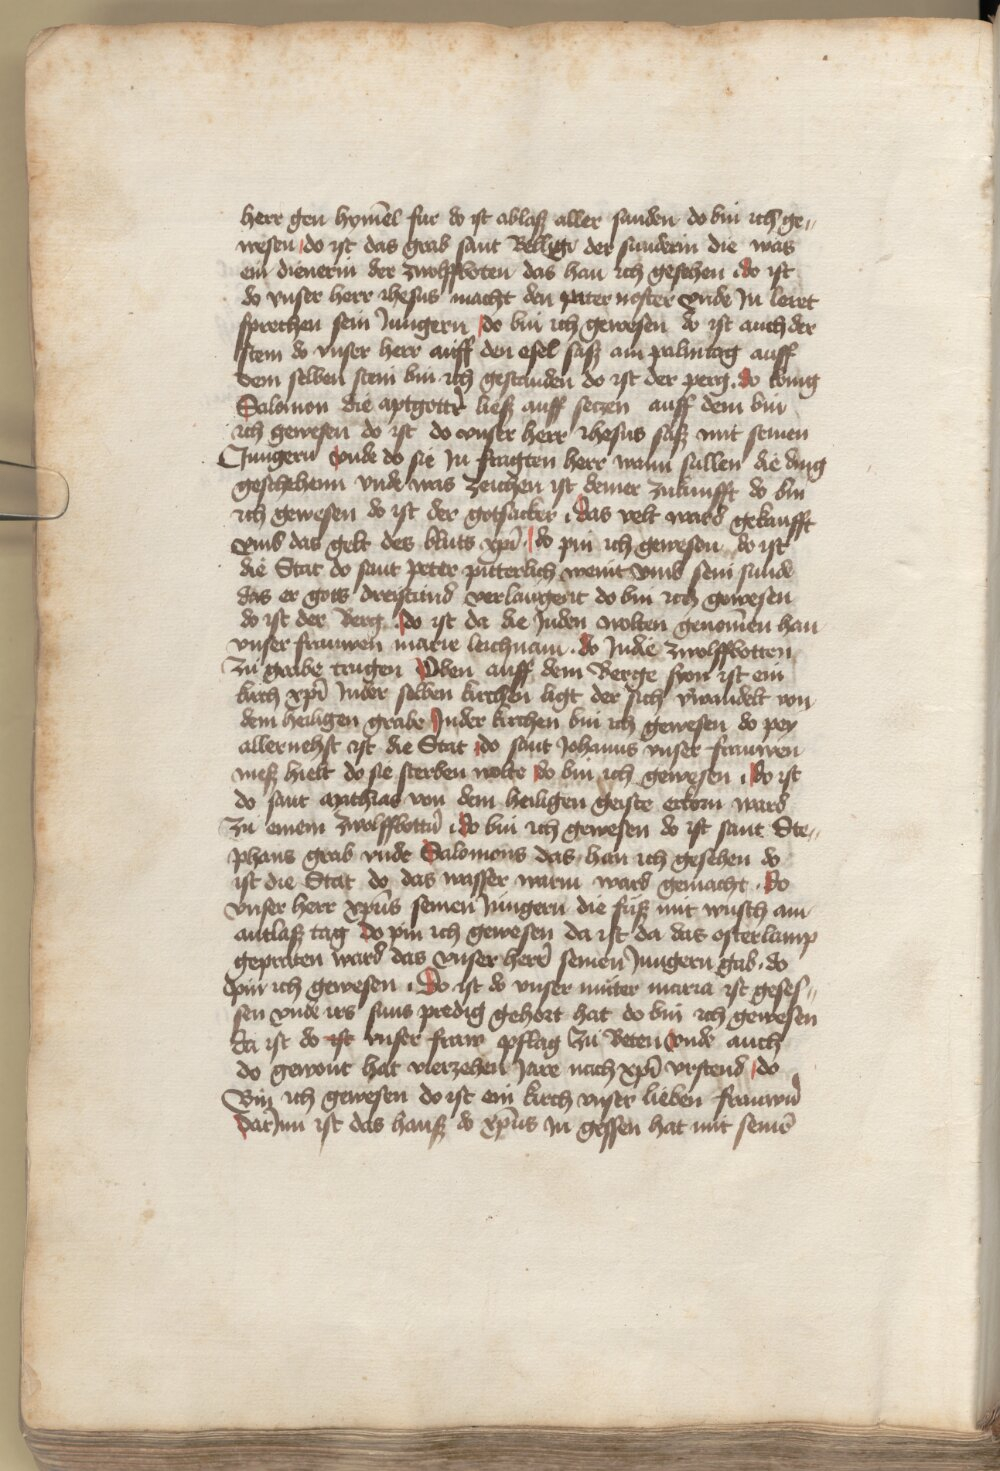 herr gen hymel fur do ist ablaß aller sunden do bin ich ge„
wesen do ist das grab sant Pellige der sunderin die was
ein dienerin der zwolffboten das han ich gesehen do ist
do vnser herr ihesus macht den pater noster vnde Jn leret
sprechen sein Jungern do bin ich gewesen do ist auch der
stein do vnser herr auff den esel saß am palmtag auff
dem selben stein bin ich gestanden do ist der perg do konig
Salomon die aptgotter ließ auff setzen auff dem bin
ich gewesen do ist do vnser herr ihesus saß mit seinen
Jungern vnde do sie Jn fragten herr wann sullen die ding
geschehenn vnde was zeichen ist deiner zukunfft do bin
ich gewesen do ist der gotsacker das velt ward gekaufft
vmb das gelt des bluts xpi do pin ich gewesen do ist
die Stat do sant peter pitterlich weint vmb sein sunde
das er gots dreistund verlaugent do bin ich gewesen
do ist der Berg do ist da die Juden wolten genomen han
vnser frauwen marie leichnam do Jn die zwolffbotten
zu grabe trugen Oben auff dem Berge syon ist ein
kirch xpi Jnder selben kirchen ligt der sich vwandelt von
dem heiligen grabe Jnder kirchen bin ich gewesen do pey
allernehst ist die Stat do sant Johanns vnser frauwen
meß hielt do sie sterben wolte do bin ich gewesen do ist
do sant mathias von dem heiligen geiste erkorn ward
zu einem zwolffbotten do bin ich gewesen do ist sant Ste„
phans grab vnde Salomons das han ich gesehen do
ist die Stat do das wasser warm ward gemacht do
vnser herr xpus seinen Jungern die fuß mit wusch am
antlaß tag do pin ich gewesen da ist da das osterlamp
gepraten ward das vnser herr seinen Jungern gab do
pin ich gewesen do ist do vnser mutter maria ist geses„
sen vnde irs suns predig gehort hat do bin ich gewesen
da ist do ist vnser fraw pflag zu Beten vnde auch
do gewont hat vierzehen Jare nach xpi vrstend do
Bin ich gewesen do ist ein kirch vnser lieben frauwen
darJnn ist das hauß do xpus Jn gessen hat mit seinen